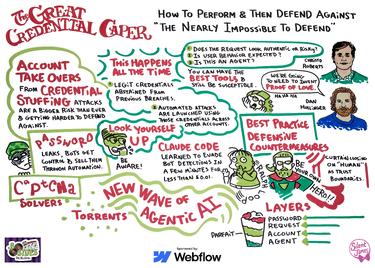 The Great
Credential Caper
How To Perform & Then Defend Against
"The Nearly Impossible To Defend"
Account
Take Overs
From Credential
Stuffing Attacks
are a bigger risk than ever
& getting harder to defend
against.
This Happens
All the Time
1 Legit credentials
abstained from
previous breaches.
2 Automated attacks
are launched using
those credentials across
other accounts.
1 Does the request look authentic or
2 Is user behavior expected?
3 Is this an agent?
You can have the
Best Tools &
still be susceptible.
We're going
to need to invent
Proof of Love.
Ha ha ha
Dan
Password
Leaks, bots get
control & sell them
through automation.
Look Yourself
Up
Be
Aware!
Claude Code
Learned to evade
bot detections in
a few minutes for
less than $0.01.
Best Practice
Defensive
Countermeasures
Be your
own
Hero!!
on "human"
as trust
boundaries.
C*P*CHa
Solvers
New Wave of
Agentic AI
Torrents
Parfait
Layers
Password
Request
Account
Agent
Sponsored by:
Webflow